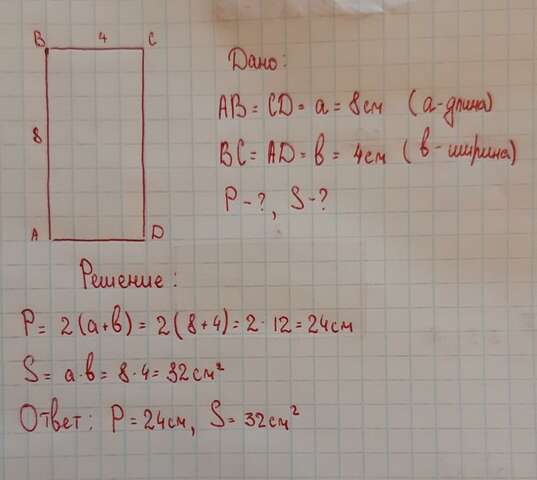 B 4 C
Дано:
AB = CD = a = 8см (a-длина)
8
BC = AD = b = 4см (b-ширина)
P-?, S-?
A D
Решение:
P = 2(a+b) = 2(8+4) = 2·12 = 24см
S = a·b = 8·4 = 32см²
Ответ: P = 24см, S = 32см²